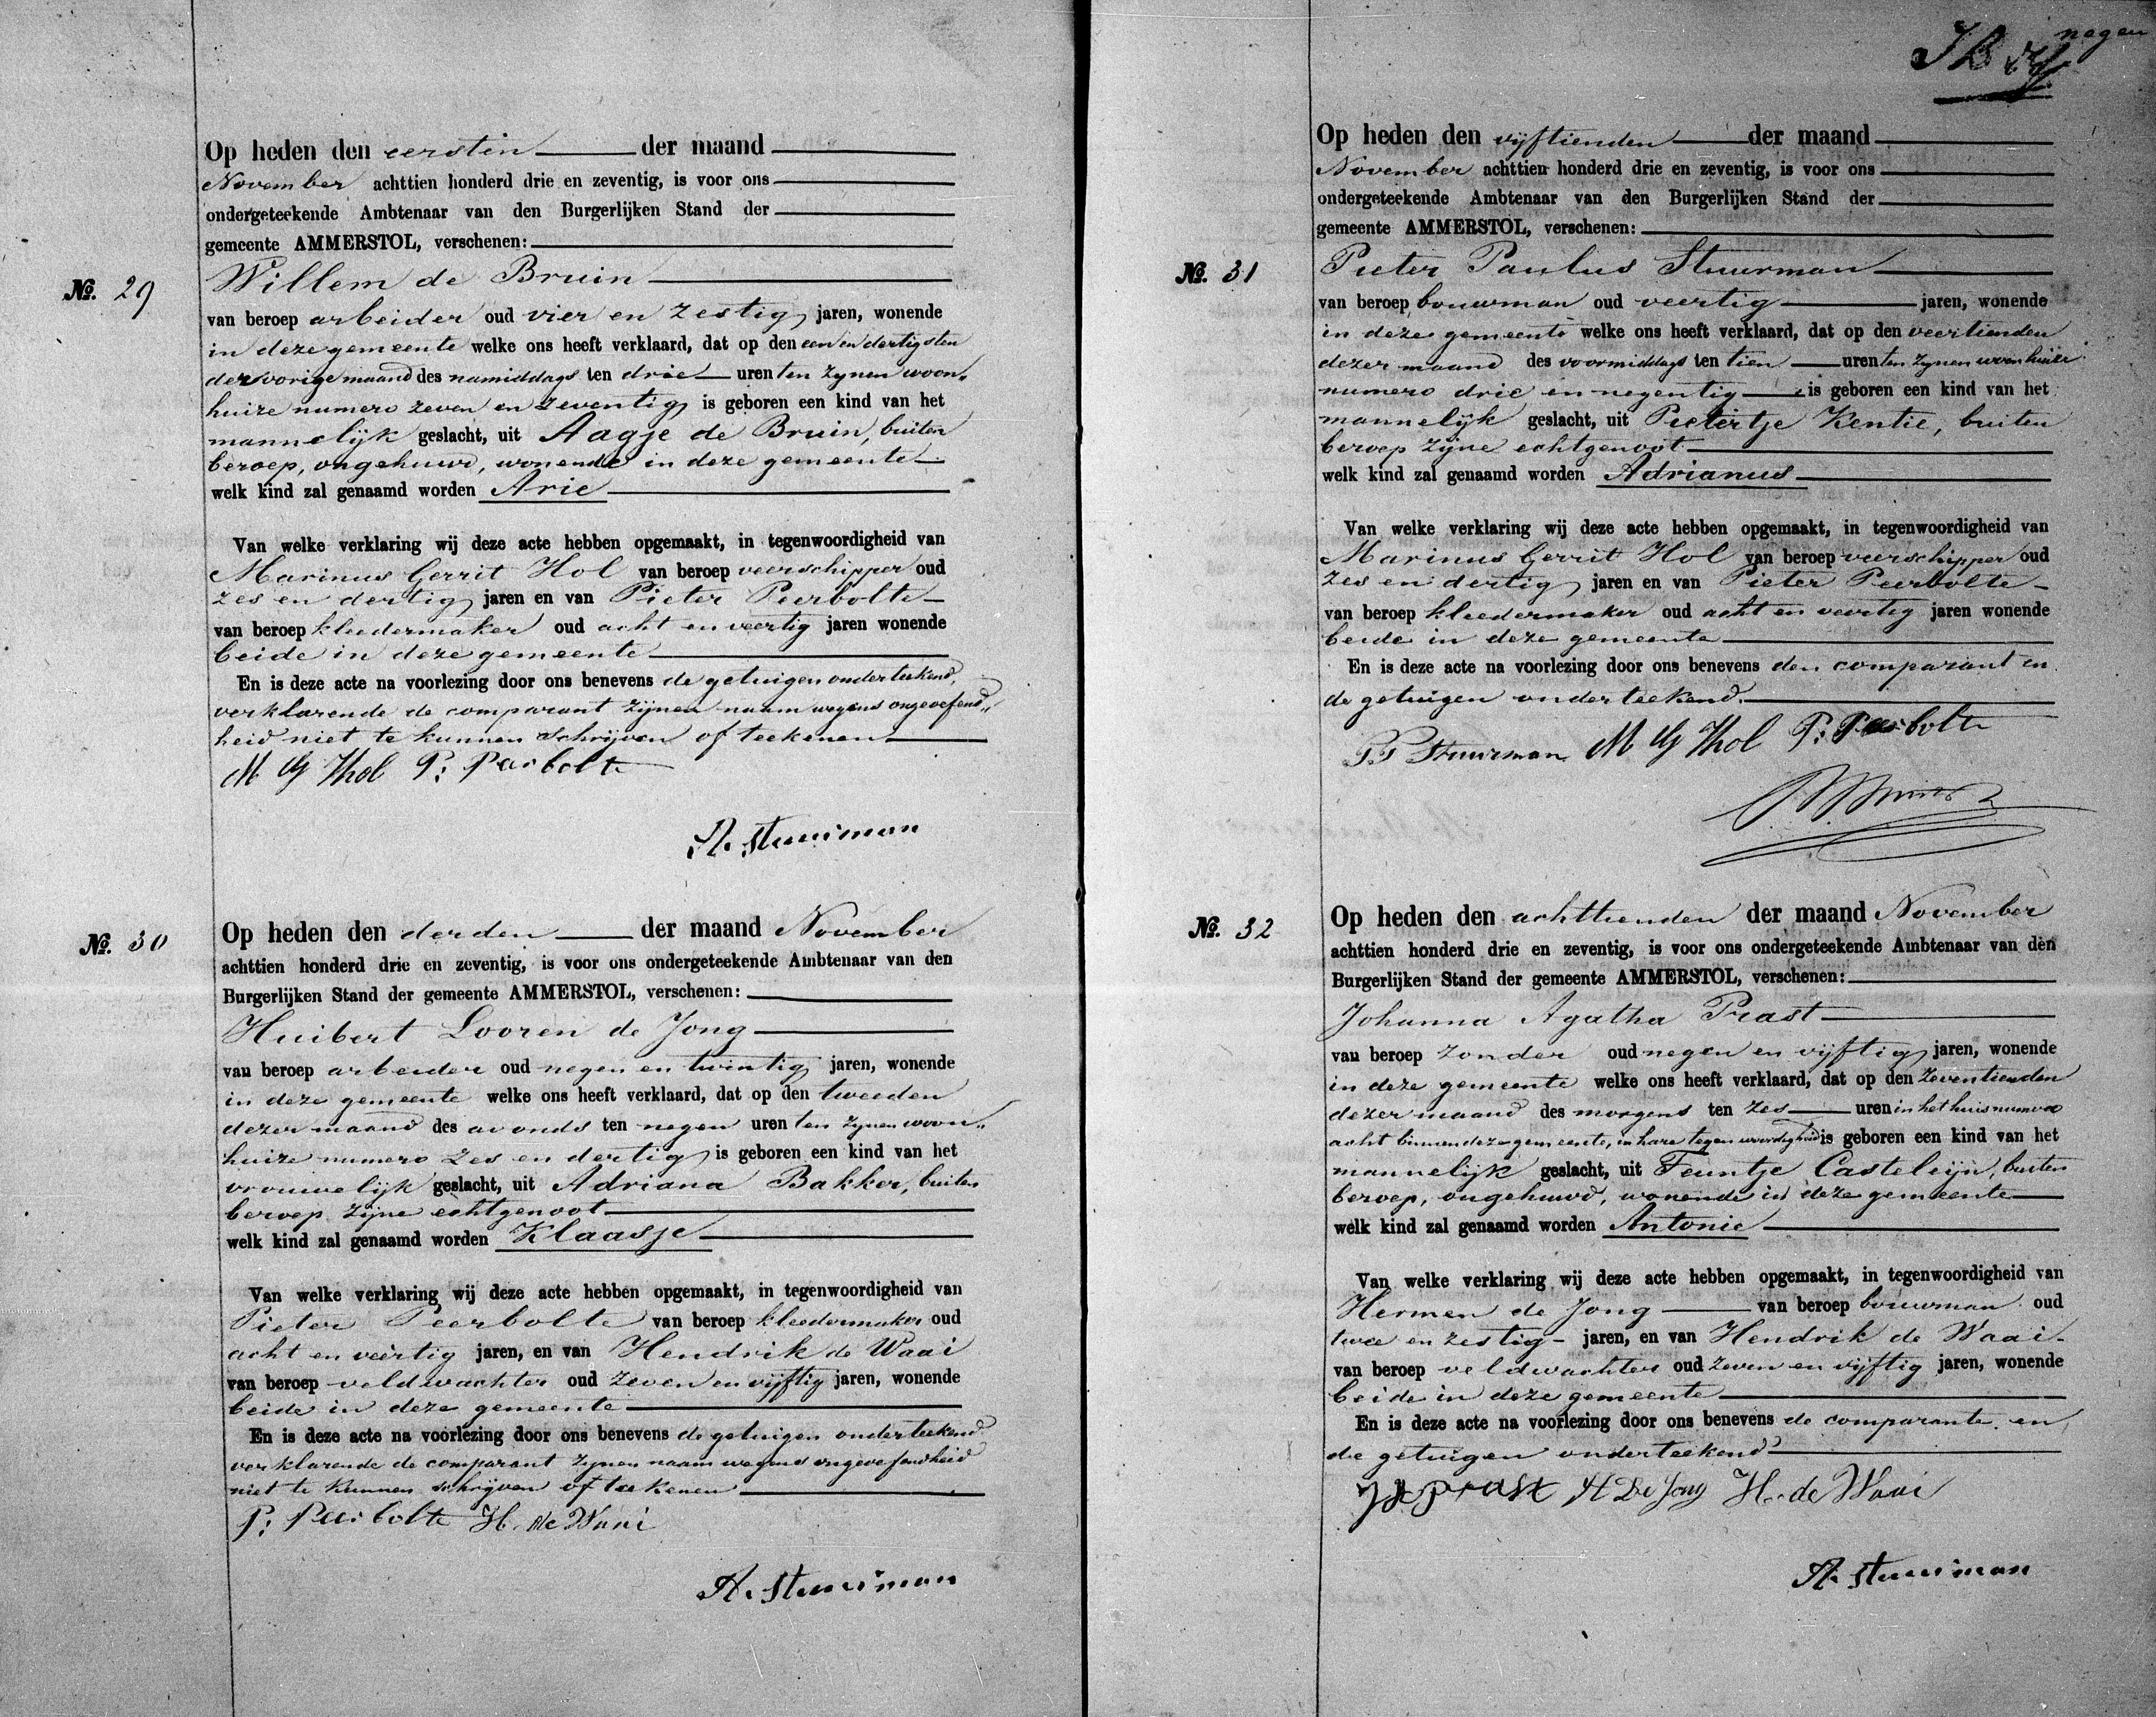 negen
Op heden den eersten der maand
November achttien honderd drie en zeventig, is voor ons
ondergeteekende Ambtenaar van den Burgerlijken Stand der
gemeente AMMERSTOL, verschenen:
No. 29
Willem de Bruin
van beroep arbeider oud vier en zestig jaren, wonende
in deze gemeente welke ons heeft verklaard, dat op den een en dertigsten
der vorige maand des namiddags ten drie uren ten zynen woon„
huize numero zeven en zeventig is geboren een kind van het
mannelijk geslacht, uit Aagje de Bruin, buiten
beroep, ongehuwd, wonende in deze gemeente
welk kind zal genaamd worden Arie
Van welke verklaring wij deze acte hebben opgemaakt, in tegenwoordigheid van
Marinus Gerrit Hol van beroep veerschipper oud
zes en dertig jaren en van Pieter Peerbolte
van beroep kleedermaker oud acht en veertig jaren wonende
beide in deze gemeente
En is deze acte na voorlezing door ons benevens de getuigen onderteekend,
verklarende de comparant zijnen naam wegens ongeoefend„
heid niet te kunnen schrijven of teekenen
M G Hol P: Peerbolte
A. Stuurman
No. 30
Op heden den derden der maand November
achttien honderd drie en zeventig, is voor ons ondergeteekende Ambtenaar van den
Burgerlijken Stand der gemeente AMMERSTOL, verschenen:
Huibert Looren de Jong
van beroep arbeider oud negen en twintig jaren, wonende
in deze gemeente welke ons heeft verklaard, dat op den tweeden
dezer maand des avonds ten negen uren ten zynen woon„
huize numero zes en dertig is geboren een kind van het
vrouwelijk geslacht, uit Adriana Bakker, buiten
beroep zijne echtgenoot
welk kind zal genaamd worden Klaasje
Van welke verklaring wij deze acte hebben opgemaakt, in tegenwoordigheid van
Pieter Peerbolte van beroep kleedermaker oud
acht en veertig jaren, en van Hendrik de Waai
van beroep veldwachter oud zeven en vijftig jaren, wonende
beide in deze gemeente
En is deze acte na voorlezing door ons benevens de getuigen onderteekend
verklarende de comparant zynen naam wegens ongeoefendheid
niet te kunnen schrijven of teekenen
P: Peerbolte H. de Waai
A. Stuurman
Op heden den vijftienden der maand
November achttien honderd drie en zeventig, is voor ons
ondergeteekende Ambtenaar van den Burgerlijken Stand der
gemeente AMMERSTOL, verschenen:
No. 31
Pieter Paulus Stuurman
van beroep bouwman oud veertig jaren, wonende
in deze gemeente welke ons heeft verklaard, dat op den veertienden
dezer maand des voormiddags ten tien uren ten zynen woonhuize
numero drie en negentig is geboren een kind van het
mannelijk geslacht, uit Pietertje Kentie, buiten
beroep zijne echtgenoot
welk kind zal genaamd worden Adrianus
Van welke verklaring wij deze acte hebben opgemaakt, in tegenwoordigheid van
Marinus Gerrit Hol van beroep veerschipper oud
zes en dertig jaren en van Pieter Peerbolte
van beroep kleedermaker oud acht en veertig jaren wonende
beide in deze gemeente
En is deze acte na voorlezing door ons benevens den comparant en
de getuigen onderteekend.
P P Stuurman M G Hol P: Peerbolte
No. 32
Op heden den achttienden der maand November
achttien honderd drie en zeventig, is voor ons ondergeteekende Ambtenaar van den
Burgerlijken Stand der gemeente AMMERSTOL, verschenen:
Johanna Agatha Prast
van beroep zonder oud negen en vijftig jaren, wonende
in deze gemeente welke ons heeft verklaard, dat op den zeventienden
dezer maand des morgens ten zes uren in het huis numero
acht binnen deze gemeente, in hare tegenwoordigheid is geboren een kind van het
mannelijk geslacht, uit Teuntje Casteleijn, buiten
beroep, ongehuwd, wonende in deze gemeente
welk kind zal genaamd worden Antonie
Van welke verklaring wij deze acte hebben opgemaakt, in tegenwoordigheid van
Hermen de Jong van beroep bouwman oud
twee en zestig jaren, en van Hendrik de Waai
van beroep veldwachter oud zeven en vijftig jaren, wonende
beide in deze gemeente
En is deze acte na voorlezing door ons benevens de comparante en
de getuigen onderteekend
Prast H De Jong H. de Waai
A. Stuurman